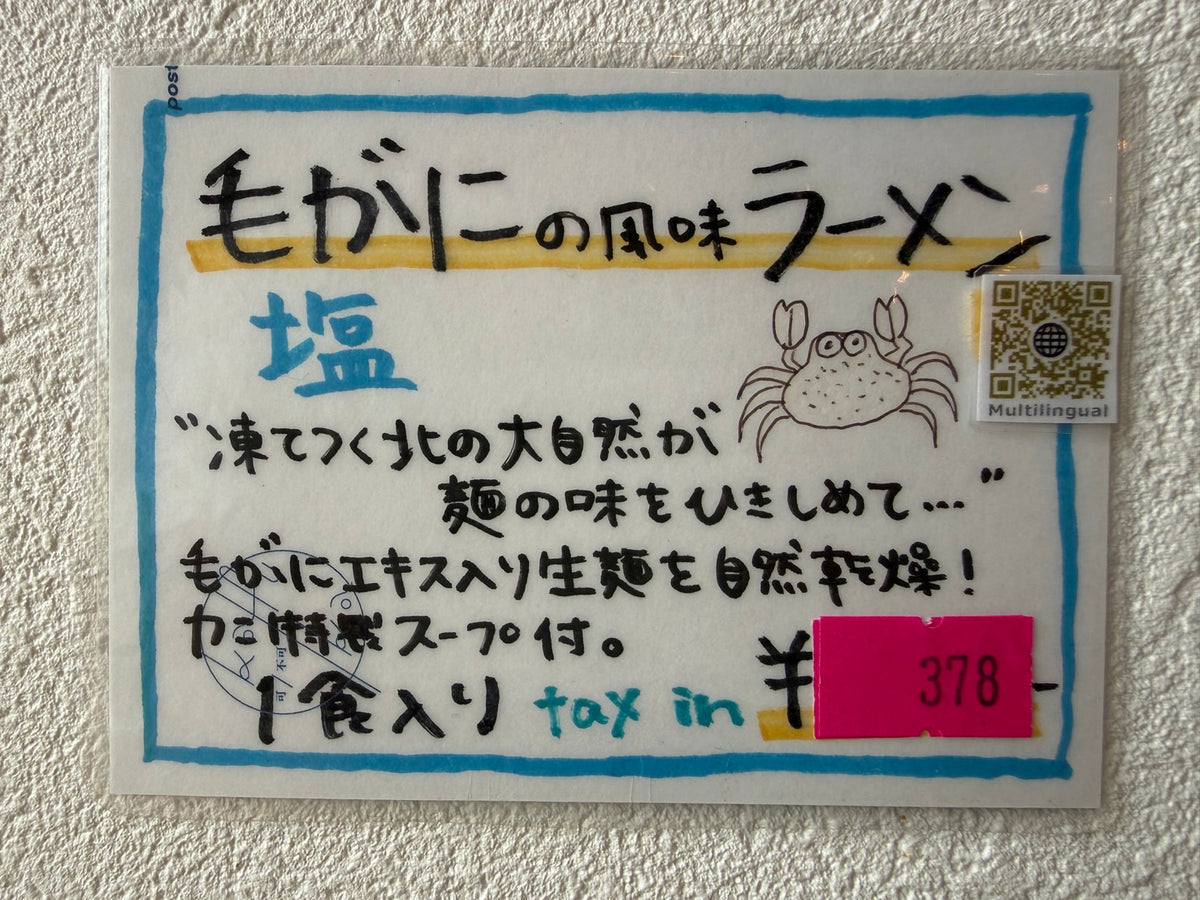 post
毛がにの風味ラーメン
塩
Multilingual
"凍てつく北の大自然が
麺の味をひきしめて…"
毛がにエキス入り生麺を自然乾燥!
カニ特製スープ付。
1食入り tax in ¥378-